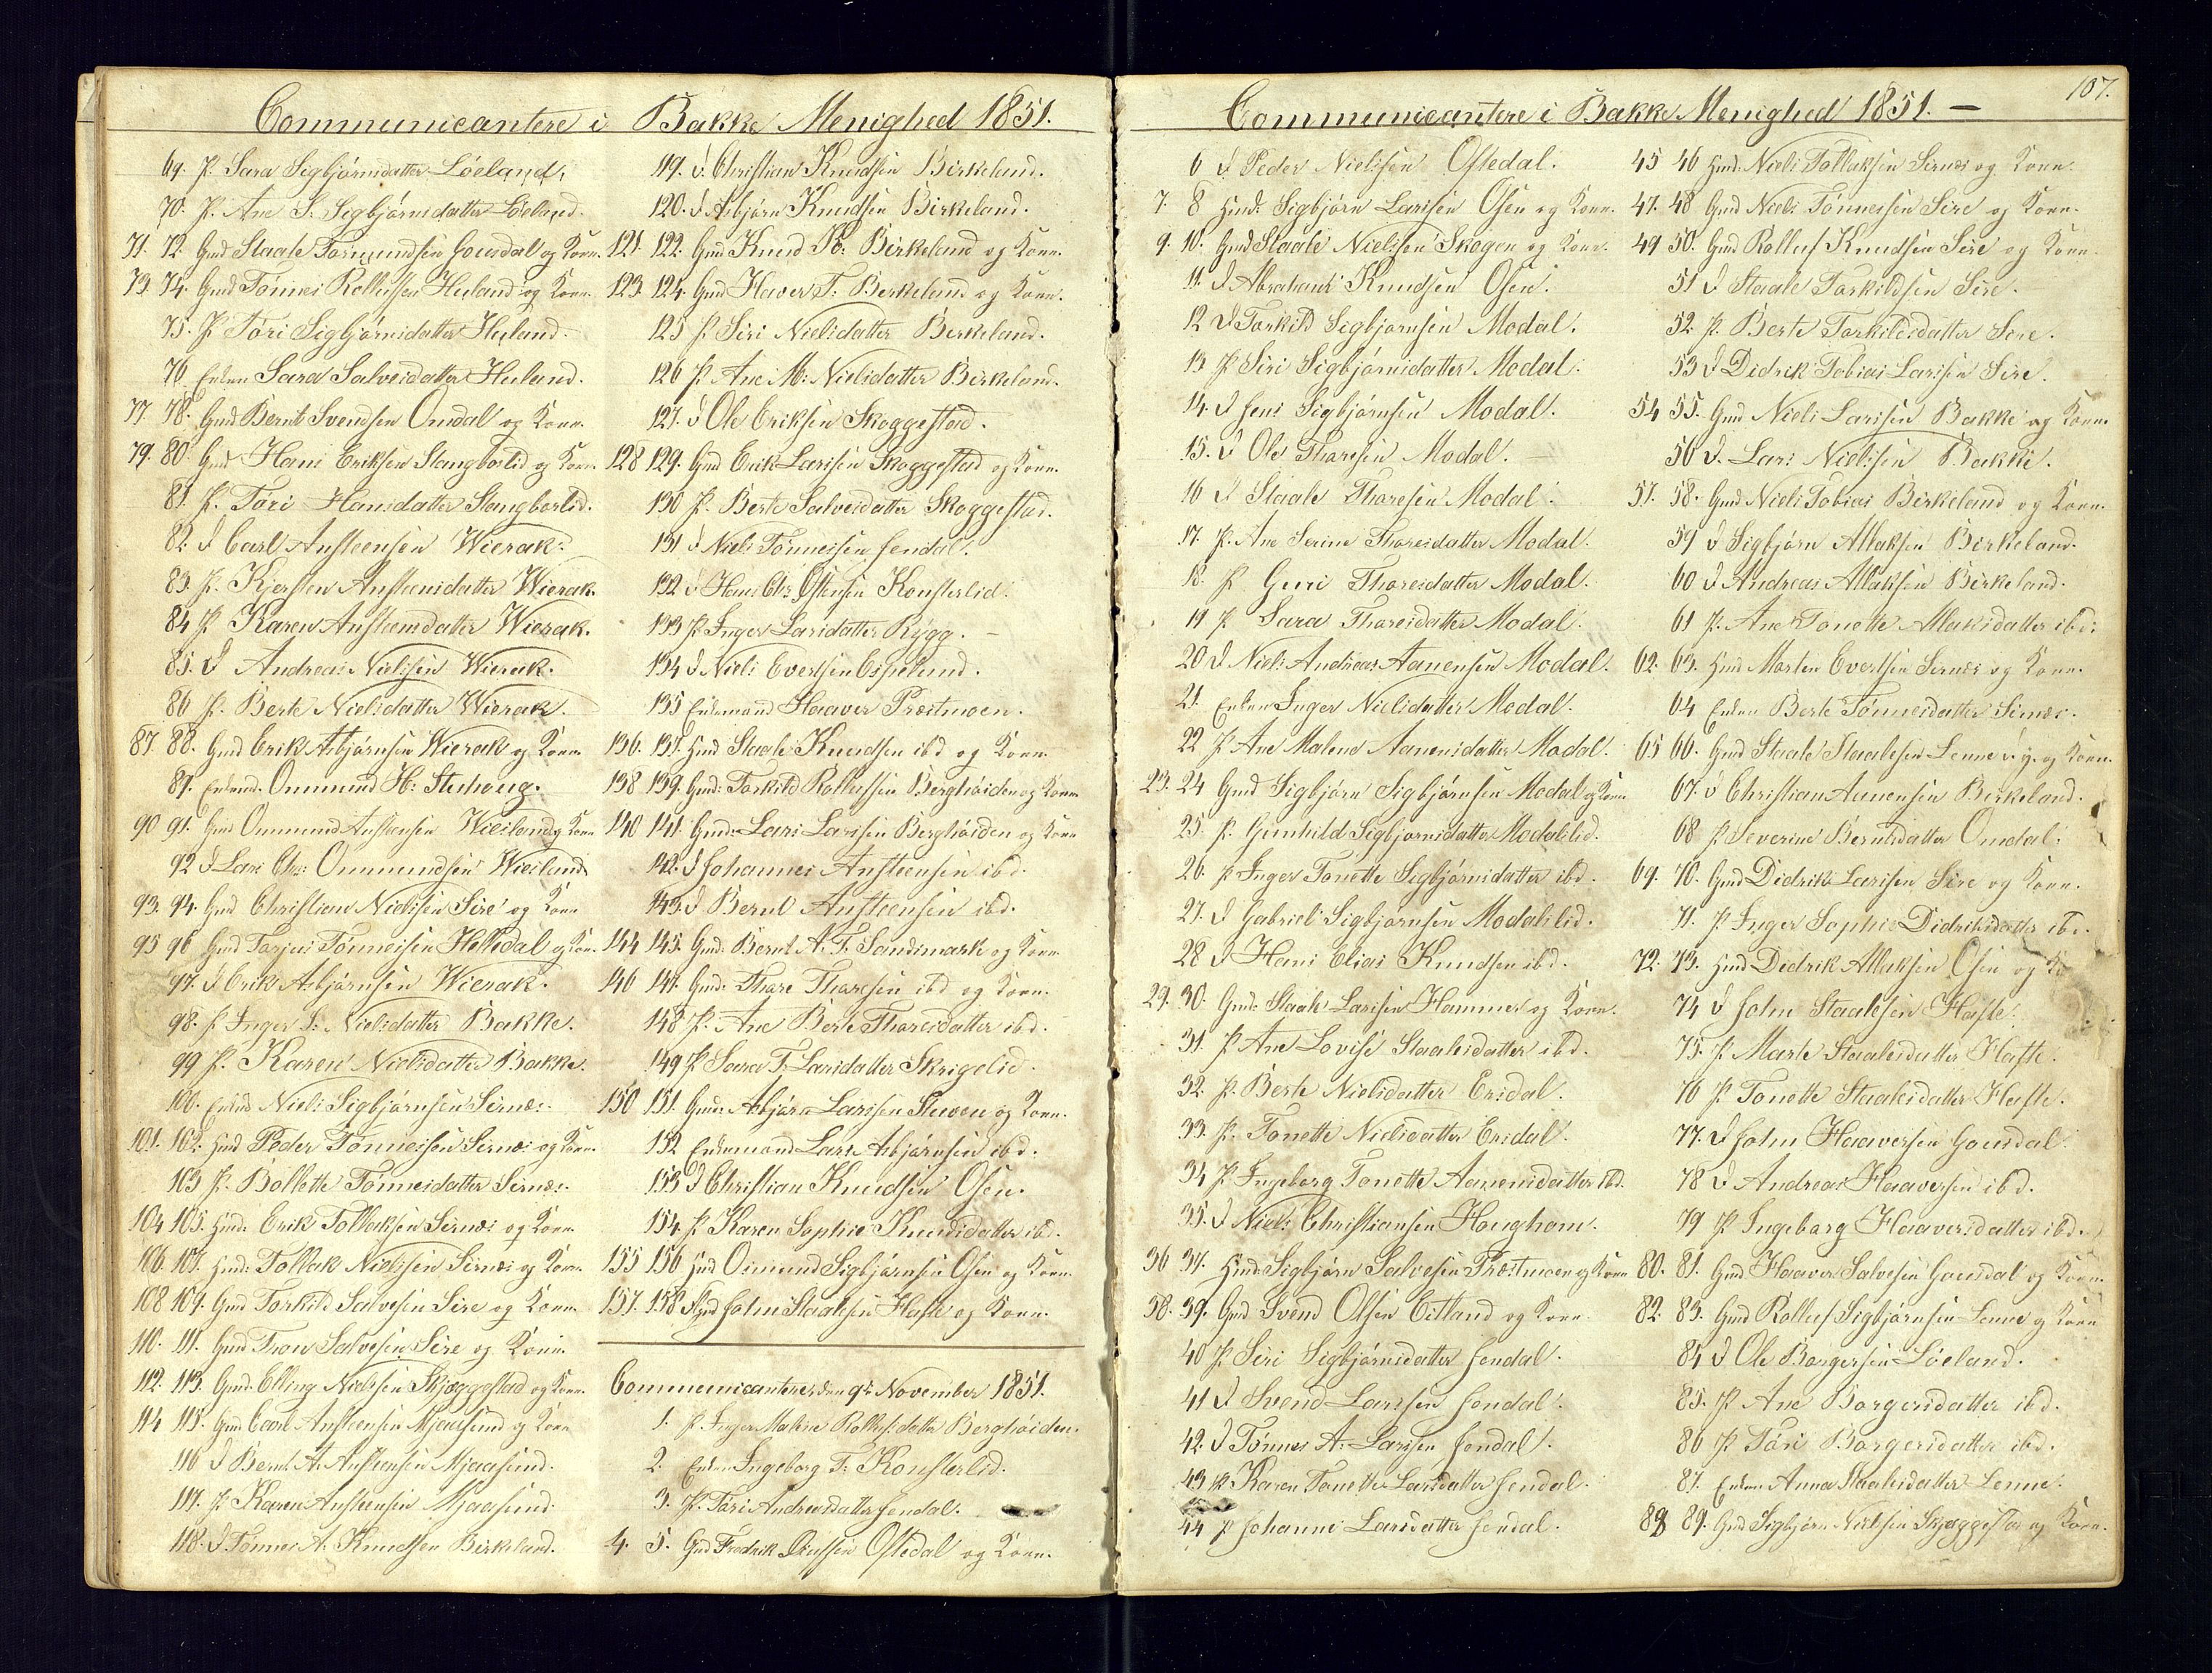 Communicantere i Bakke Menighed 1851.
69. P. Sara Sigbjörnsdatter Löeland.
70. P. Ane S. Sigbjörnsdatter Löeland.
71. 72. Gmd Staale Tormundsen Gousdal og Kone.
73. 74. Gmd Tönnes Rollufsen Huland og Kone.
75. P. Töri Sigbjörnsdatter Huland.
76. Enken Sara Salvesdatter Huland.
77. 78. Gmd Bernt Svendsen Omdal og Kone.
79. 80. Gmd Hans Eriksen Stangborlid og Kone.
81. P. Töri Hansdatter Stangborlid.
82. U Carl Ansteensen Wierak.
83. P. Kjersten Ansteensdatter Wierak.
84 P Karen Ansteensdatter Wierak.
85. U Andreas Nielsen Wierak.
86 P. Berte Nielsdatter Wierak.
87. 88. Gmd Erik Asbjörnsen Wierak og Kone
89. Enkmd. Ommund H. Stuhoug.
90 91. Gmd Ommund Ansteensen Wieland og Kone
92 U Lars Chr: Ommundsen Wieland
93. 94. Gmd Christian Nielsen Sire og Kone
95 96 Gmd Tarjus Tönnesen Helledal og Kone.
97. U Erik Asbjörnsen Wierak.
98. P Inger S. Nielsdatter Bakke.
99 P. Karen Nielsdatter Bakke.
100. Enkmd Niels Sigbjörnsen Sirnes.
101. 102. Hmd Peder Tönnesen Sirnes og Kone.
103 P. Bollette Tönnesdatter Sirnes.
104 105. Hmd. Erik Tollaksen Sirnes og Kone.
106. 107. Hmd: Tollak Nielsen Sirnes og Kone.
108 109. Gmd Torkild Salvesen Sire og Kone.
110. 111. Gmd Tron Salvesen Sire og Kone.
112. 113. Gmd. Elling Nielsen Skjæggestad og Kone.
114 115. Gmd Carl Ansteensen Mjaasund og Kone
116 U Bernt A. Ansteensen Mjaasund.
117. P. Karen Ansteensen Mjaasund.
118. U Tönnes A. Knudsen Birkeland.
119. U. Christian Knudsen Birkeland.
120. U Asbjörn Knudsen Birkeland.
121. 122. Gmd Knud K: Birkeland og Kone.
123. 124. Gmd Haver T. Berkeland og Kone.
125 P. Siri Nielsdatter Berkeland.
126 P. Ane M: Nielsdatter Birkeland.
127. U Ole Eriksen Skoggestad.
128 129. Gmd Erik Larssen Skoggestad og Kone.
130 P. Berte Salvesdatter Skoggestad.
131 U Niels Tönnesen Jendal.
132 U Hans Chr: Ostensen Konsterlid.
133 P. Inger Larsdatter Rygg.
134 U Niels Evertsen Espelund.
135 Enkemand Haaver Præstmoen.
136. 137. Hmd Staale Knudsen ibd og Kone
138 139. Gmd. Torkild Rollufsen Berghöiden og Kone
140 141. Gmd. Lars Larssen Berghöiden og Kone
142. U Johannes Ansteensen ibd.
143. U Bernt Ansteensen ibd.
144 145. Gmd. Bernt A. T. Sandsmark og Kone
146 147. Gmd. Thore Thoresen ibd og Kone.
148 P. Ane Berte Thoresdatter ibd.
149 P Sara T. Larsdatter Skrigelid.
150 151. Gmd. Asbjörn Larssen Stuven og Kone.
152 Enkemand Lars Asbjörnsen ibd.
153 U Christian Knudsen Osen.
154. P Karen Sophie Knudsdatter ibd.
155 156 Hmd Osmund Sigbjörnsen Osen og Kone.
157. 158 Gmd John Staalesen Hafte og Kone.
Communicantere den 9de November 1851.
1. P. Inger Malene Rollufsdatter Berghöiden.
2. Enken Ingeborg T: Konsterlid.
3. P. Töri Andreasdatter Jendal.
4. 5. Gmd Fredrik Olufsen Oftedal og Kone.
107.
Communicantere i Bakke Menighed 1851. —
6 U Peder Nielsen Oftedal.
7. 8 Hmd. Sigbjörn Larssen Osen og Kone.
9. 10. Gmd Staale Nielsen Skogen og Kone.
11. U Abraham Knudsen Osen.
12 U Torkild Sigbjörnsen Modal.
13 P Siri Sigbjörnsdatter Modal.
14. U Jens Sigbjörnsen Modal.
15. U Ole Thoresen Modal.
16 U Staale Thoresen Modal.
17. P. Ane Serine Thoresdatter Modal.
18. P Guri Thoresdatter Modal.
19 P Sara Thoresdatter Modal.
20 U Niels Andreas Aanensen Modal.
21. Enken Inger Nielsdatter Modal.
22 P Ane Malene Aanensdatter Modal.
23. 24 Gmd Sigbjörn Sigbjörnsen Modal og Kone
25. P. Gunhild Sigbjörnsdatter Modalslid.
26. P Inger Tonette Sigbjörnsdatter ibd.
27. U Gabriel Sigbjörnsen Modalslid.
28 U Hans Elias Knudsen ibd.
29. 30. Gmd. Staale Larssen Hammer og Kone.
31. P Ane Lovise Staalesdatter ibd.
32. P. Berte Nielsdatter Eridal.
33. P. Tonette Nielsdatter Eridal.
34 P. Ingeborg Tonette Aanensdatter ibd.
35. U Niels Christiansen Houghom.
36 37. Hmd. Sigbjörn Salvesen Præstmoen og Kone
38. 39. Gmd Svend Olsen Eitland og Kone
40 P. Siri Sigbjörnsdatter Jendal.
41 U Svend Larssen Jendal.
42. U Tönnes A. Larssen Jendal.
43 P Karen Tonette Larsdatter Jendal.
44 P Johanne Larsdatter Jendal.
45 46 Hmd. Niels Tollaksen Sirnes og Kone.
47. 48 Gmd Niels Tönnesen Sire og Kone.
49 50. Gmd Rolluf Knudsen Sire og Kone.
51 U Staale Torkildsen Sire.
52. P. Berte Torkildsdatter Sire.
53 U Didrik Tobias Larssen Sire.
54 55. Gmd Niels Larssen Bakke og Kone.
56 U. Lars Nielsen Bakke.
57. 58. Gmd Niels Tobias Birkeland og Kone.
59 U Sigbjörn Atlaksen Birkeland.
60 U Andreas Atlaksen Birkeland.
61 P. Ane Tonette Atlaksdatter ibd.
62. 63. Hmd Morten Evertsen Sirnes og Kone.
64 Enken Berte Tönnesdatter Sirnes.
65 66. Gmd Staale Staalesen Lenne v. y. og Kone.
67. U Christian Aanensen Birkeland.
68 P Severine Berntsdatter Omdal.
69. 70. Gmd Didrik Larssen Sire og Kone.
71. P Inger Sophie Didriksdatter ibd.
72. 73. Hmd Didrik Atlaksen Osen og Ko
74 U John Staalesen Hafte.
75. P. Marte Staalesdatter Hafte.
76 P Tonette Staalesdatter Hafte.
77. U John Haaversen Gousdal.
78 U Andreas Haaversen ibd.
79 P Ingeborg Haaversdatter ibd.
80. 81. Gmd Haaver Salvesen Gousdal og Kone.
82. 83. Gmd Rolluf Sigbjörnsen Lenne og Kone
84 U Ole Borgersen Löeland.
85. P Ane Borgersdatter ibd.
86 P Töri Borgersdatter ibd.
87. Enken Anna Staalesdatter Lenne.
88 89. Gmd Sigbjörn Nielsen Skjæggestad og Kone.